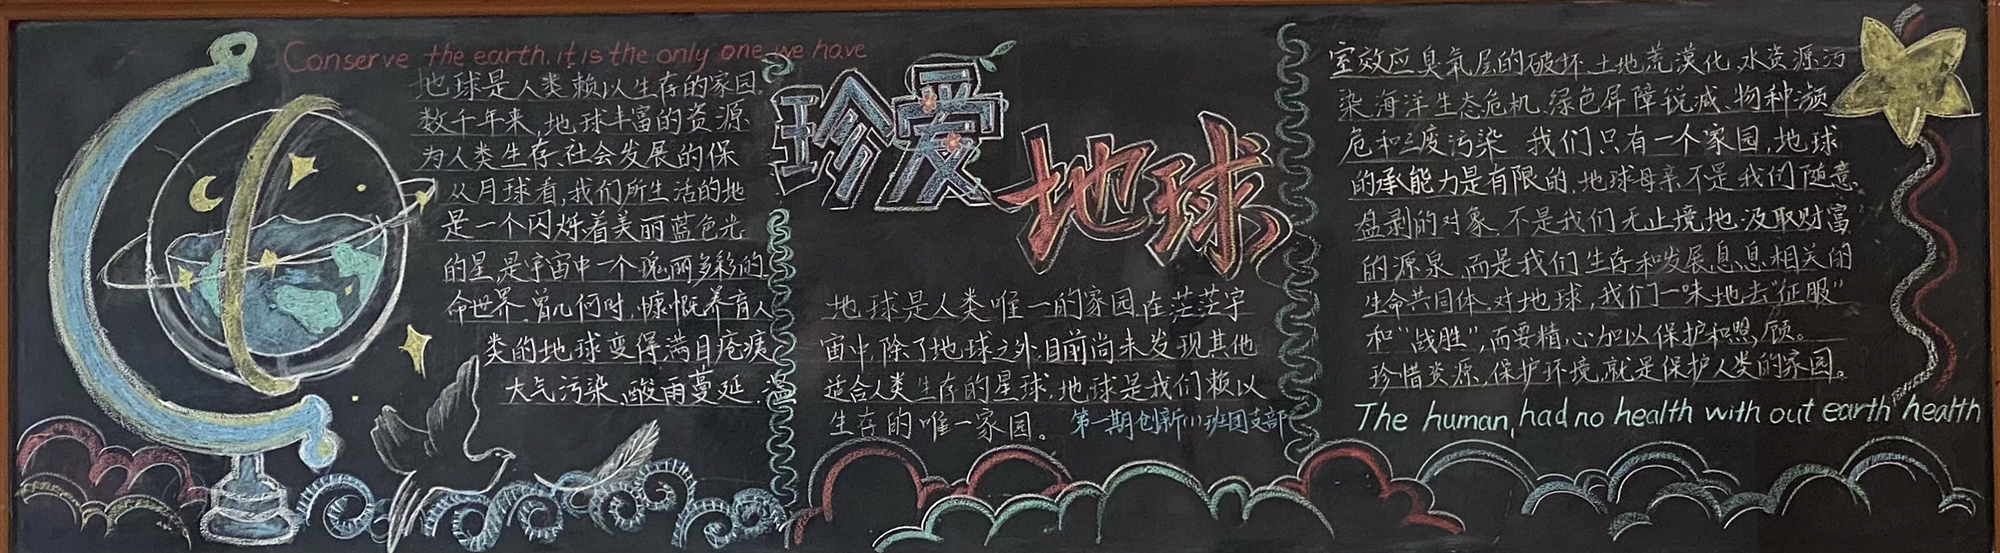 Conserve the earth, it is the only one we have
地球是人类赖以生存的家园。
数千年来,地球丰富的资源
为人类生存、社会发展的保
从月球看,我们所生活的地
是一个闪烁着美丽蓝色光
的星,是宇宙中一个瑰丽多彩的
命世界。曾几何时,慷慨养育人
类的地球变得满目疮痍
大气污染、酸雨蔓延、温
珍爱
地球
地球是人类唯一的家园,在茫茫宇
宙中,除了地球之外,目前尚未发现其他
适合人类生存的星球。地球是我们赖以
生存的唯一家园。
第一期创新(1)班团支部
室效应臭氧层的破坏、土地荒漠化、水资源污
染、海洋生态危机、绿色屏障锐减、物种濒
危和三度污染 我们只有一个家园,地球
的承能力是有限的,地球母亲不是我们随意
盘剥的对象,不是我们无止境地汲取财富
的源泉,而是我们生存和发展息息相关的
生命共同体。对地球,我们一味地去“征服”
和“战胜”,而要精心加以保护和照顾。
珍惜资源,保护环境,就是保护人类的家园。
The human, had no health with out earth health